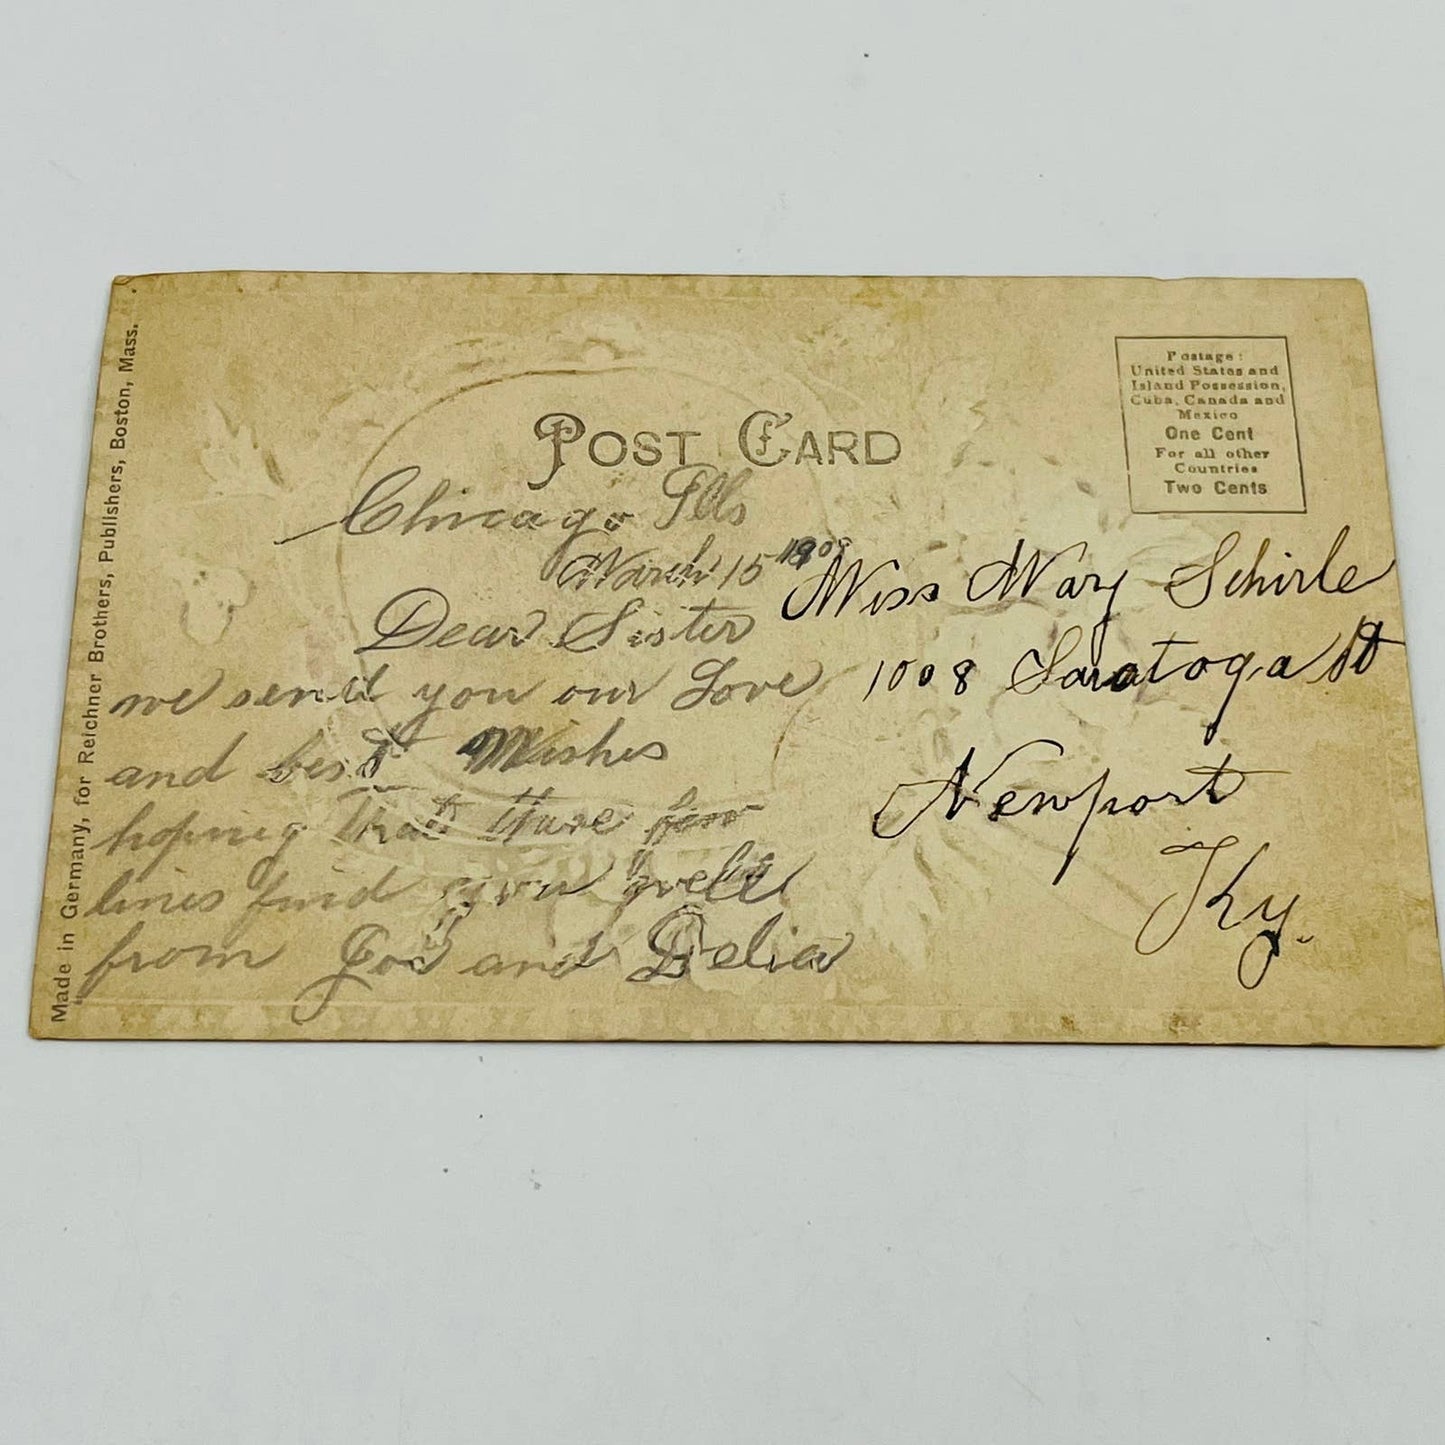 Made in Germany, for Reichner Brothers, Publishers, Boston, Mass.
POST CARD
Postage:
United States and
Island Possession,
Cuba, Canada and
Mexico
One Cent
For all other
Countries
Two Cents
Chicago Ills
March 15 1908
Dear Sister
we send you our Love
and best Wishes
hoping that these few
lines find you well
from Joe and Delia
Miss Mary Schirle
1008 Saratoga St
Newport
Ky.